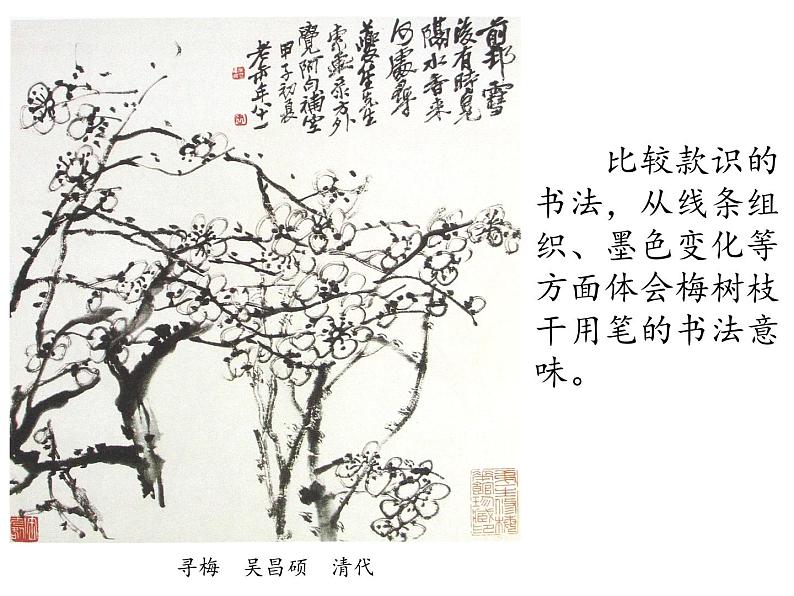 前邨雪
後有時見
隔水香來
何處尋
生先生
方外
覺阿句補空
甲子初夏
老缶年八十一
比较款识的
书法，从线条组
织、墨色变化等
方面体会梅树枝
干用笔的书法意
味。
寻梅 吴昌硕 清代